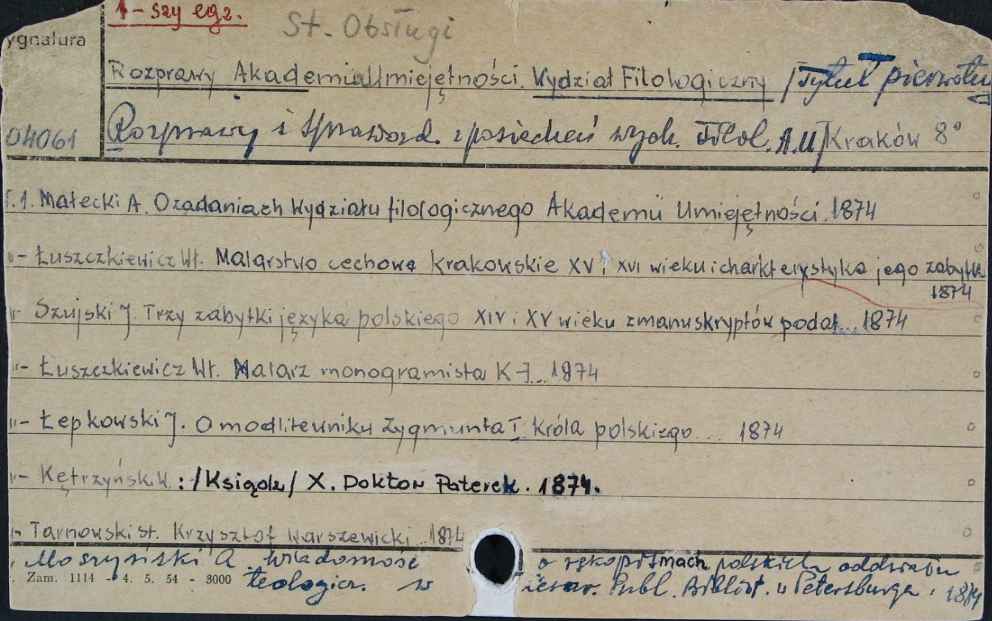 1-szy egz.
St. Obsługi
ygnatura
Rozprawy Akademia Umiejętności. Wydział Filologiczny /Tytuł pierwotny
04061 Rozprawy i Sprawozd. z posiedzeń wydz. Filol. A.U/ Kraków 8°
T.1. Małecki A. O zadaniach Wydziału filologicznego Akademii Umiejętności. 1874
"- Łuszczkiewicz Wł. Malarstwo cechowe krakowskie XV i XVI wieku i charakterystyka jego zabytk
1874
"- Szujski J. Trzy zabytki języka polskiego XIV i XV wieku z manuskryptów podał... 1874
"- Łuszczkiewicz Wł. Malarz monogramista K-J... 1874
"- Łepkowski J. O modlitewniku Zygmunta I króla polskiego ... 1874
"- Kętrzyńsk. W. : /Ksiądz/ X. Doktor Paterek. 1874.
"- Tarnowski St. Krzysztof Warszewicki.. 1874
Moszyński A. wiadomość o rękopismach polskich oddziału
Zam. 1114 - 4. 5. 54 - 3000 teologicz. w cesar. Publ. Bibliot. w Petersburgu. 1874